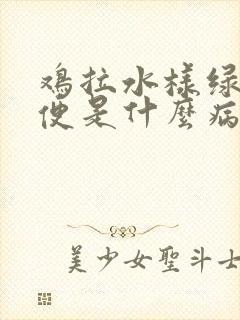 鸡拉水樣绿
便是什麼病
美少女聖斗士